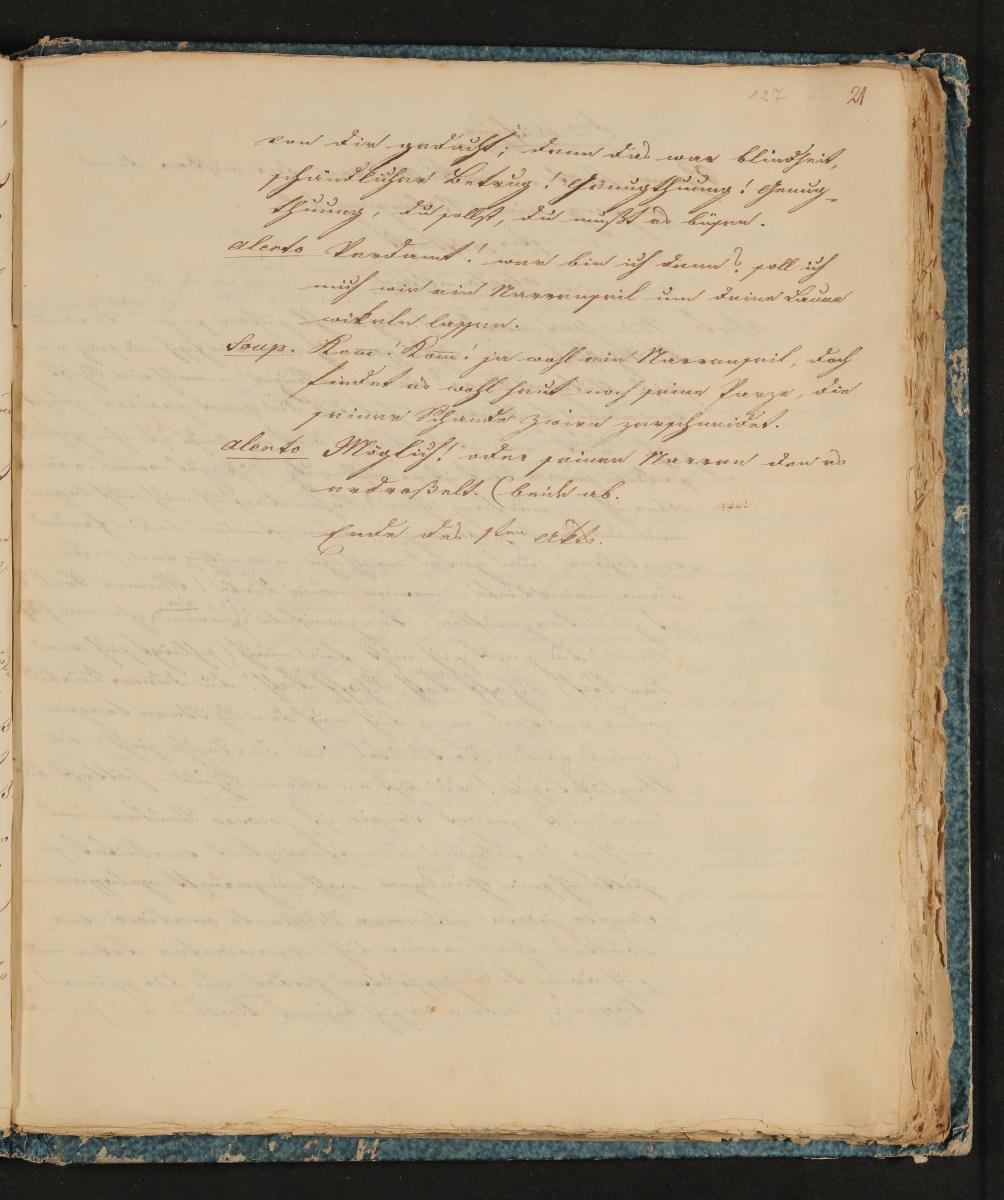 127 21
von dir gedacht; denn das war blindheit,
schändlicher Betrug! Genugthuung! Genug-
thuung, du sollst, du mußt es büsen.
alento Verdamt! wer bin ich denn? soll ich
mich wie ein Narrenseil um deine Laune
wikeln lassen.
Soup. Kom̅! Kom̅! ja wohl ein Narrenseil, doch
findet es wohl heut noch seine Parze, die
seiner Schande Zwirn zerschneidet.
alento Möglich! oder seinen Narren den es
erdroßelt. (beide ab.
Ende des 1ten Akts.